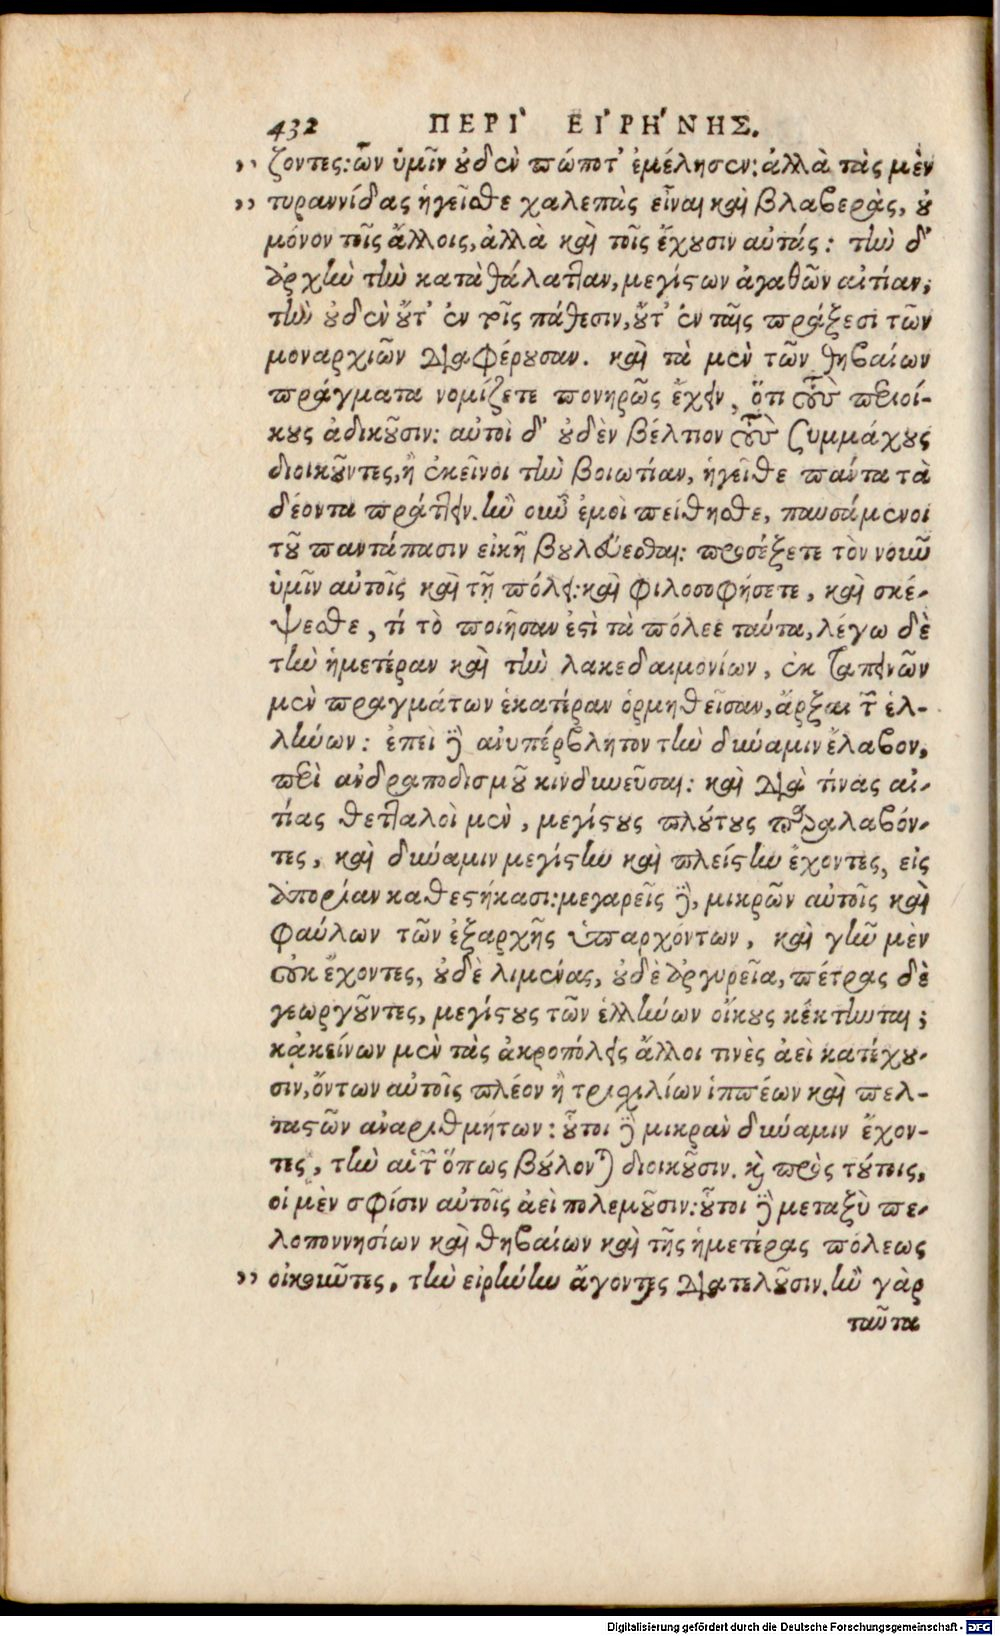 432 ΠΕΡΙ` ΕΙ᾿ΡΗ´ΝΗΣ.
” ζοντες: ὧν ὑμῖν οὐδὲν πώποτ᾽ ἐμέλησεν: ἀλλὰ τὰς μὲν
” τυραννίδας ἡγεῖσθε χαλεπὰς εἶναι καὶ βλαβερὰς, οὐ
μόνον τοῖς ἄλλοις, ἀλλὰ καὶ τοῖς ἔχουσιν αὐτάς: τὴν δ᾽
ἀρχὴν τὴν κατὰ θάλατταν, μεγίστων ἀγαθῶν αἰτίαν;
τὴν οὐδὲν οὔτ᾽ ἐν τοῖς πάθεσιν, οὔτ᾽ ἐν ταῖς πράξεσι τῶν
μοναρχιῶν διαφέρουσαν. καὶ τὰ μὲν τῶν θηβαίων
πράγματα νομίζετε πονηρῶς ἔχειν, ὅτι τοὺς περιοί-
κους ἀδικοῦσιν: αὐτοὶ δ᾽ οὐδὲν βέλτιον τοὺς συμμάχους
διοικοῦντες, ἢ ἐκεῖνοι τὴν βοιωτίαν, ἡγεῖσθε πάντα τὰ
δέοντα πράττειν. ἢν οὖν ἐμοὶ πείθησθε, παυσάμενοι
τοῦ παντάπασιν εἰκῆ βουλεύεσθαι: προσέξετε τὸν νοῦν
ὑμῖν αὐτοῖς καὶ τῇ πόλει: καὶ φιλοσοφήσετε, καὶ σκέ-
ψεσθε, τί τὸ ποιῆσαν ἐστὶ τὰ πόλεε ταύτα, λέγω δὲ
τὴν ἡμετέραν καὶ τὴν λακεδαιμονίων, ἐκ ταπεινῶν
μὲν πραγμάτων ἑκατέραν ὁρμηθεῖσαν, ἄρξαι τῶν ἑλ-
λήνων: ἐπεὶ δὲ ἀνυπέρβλητον τὴν δύναμιν ἔλαβον,
περὶ ἀνδραποδισμοῦ κινδυνεῦσαι: καὶ διὰ τίνας αἰ-
τίας θετταλοὶ μὲν, μεγίστους πλούτους παραλαβόν-
τες, καὶ δύναμιν μεγίστην καὶ πλείστην ἔχοντες, εἰς
ἀπορίαν καθεστήκασι: μεγαρεῖς δὲ, μικρῶν αὐτοῖς καὶ
φαύλων τῶν ἐξαρχῆς ὑπαρχόντων, καὶ γῆν μὲν
οὐκ ἔχοντες, οὐδὲ λιμένας, οὐδὲ ἀργυρεῖα, πέτρας δὲ
γεωργοῦντες, μεγίστους τῶν ἑλλήνων οἴκους κέκτηνται;
κἀκείνων μὲν τὰς ἀκροπόλεις ἄλλοι τινὲς ἀεὶ κατέχου-
σιν, ὄντων αὐτοῖς πλέον ἢ τρισχιλίων ἱππέων καὶ πελ-
ταστῶν ἀναριθμήτων: οὗτοι δὲ μικρὰν δύναμιν ἔχον-
τες, τὴν αὑτῶν ὅπως βούλονται διοικοῦσιν. καὶ πρὸς τούτοις,
οἱ μὲν σφίσιν αὐτοῖς ἀεὶ πολεμοῦσιν: οὗτοι δὲ μεταξὺ πε-
λοποννησίων καὶ θηβαίων καὶ τῆς ἡμετέρας πόλεως
” οἰκοῦντες, τὴν εἰρήνην ἄγοντες διατελοῦσιν. ἢν γὰρ
ταῦτα
Digitalisierung gefördert durch die Deutsche Forschungsgemeinschaft - DFG